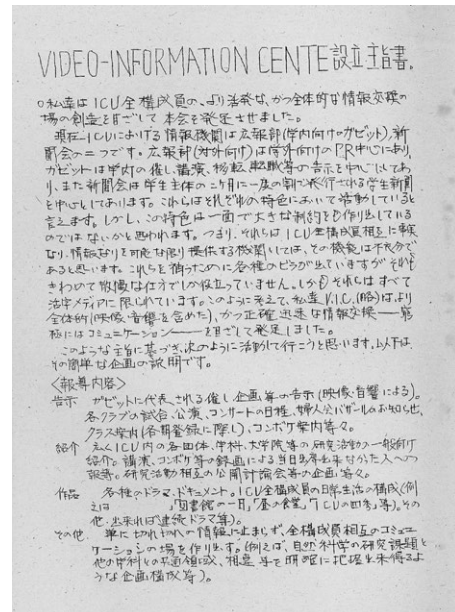 VIDEO-INFORMATION CENTE設立主旨書。
○私達はICU全構成員の、より活発な、かつ全体的な情報交換の
場の創造を目ざして本会を発足させました。
現在ICUにおける情報機関は広報部(学内向けのガゼット)、新
聞会の二つです。広報部(対外向け)は学外向けのPR中心にあり、
ガゼットは学内の催し、講演、移転、転職等の告示を中心にしてお
り、また新聞会は学生主体の二ヶ月に一度の割で発行される学生新聞
を中心としております。これらはそれぞれの特色において活動していると
言えます。しかし、この特色は一面で大きな制約をも作り出している
のではないかと思われます。つまり、それらはICU全構成員相互に事実
なり、情報なりを可能な限り提供する機関としては、その機能は不充分で
あると思います。これらを補うために各種のビラが出ていますが それも
きわめて散慢な仕方でしか役立っていません。しかも それらは すべて
活字メディアに限られています。このように考えて、私達V.I.C.(略)は、より
全体的(映像・音響を含めた)、かつ正確 迅速な情報交換――窮
極にはコミュニケーション――を目ざして発足しました。
このような主旨に基づき、次のように活動して行こうと思います。以下は、
その簡単な企画の説明です。
〈報導内容〉
告示 ガゼットに代表される催し、企画等の告示(映像・音響による)。
各クラブの試合、公演、コンサートの日程、婦人会バザールのお知らせ、
クラス案内(各期登録に際し)、コンボケ案内等々。
紹介 広くICU内の各団体、学科、大学院等の研究活動の一般向け
紹介。講演、コンボケ等の録画による当日出席出来なかった人への
報導。研究活動相互の公開討論会等の企画 等々。
作品 各種のドラマ、ドキュメント。ICU全構成員の日常生活の構成(例
えば 「図書館の一日」「昼の食堂」「ICUの四季」等)。その
他、出来れば連続ドラマ等)。
その他 単に切れ切れの情報に止まらず、全構成員相互のコミュニ
ケーションの場を作り出す。(例えば、自然科学の研究課題と
他の学科との共通領域、相違等を明確に把握出来得るよ
うな企画構成等)。